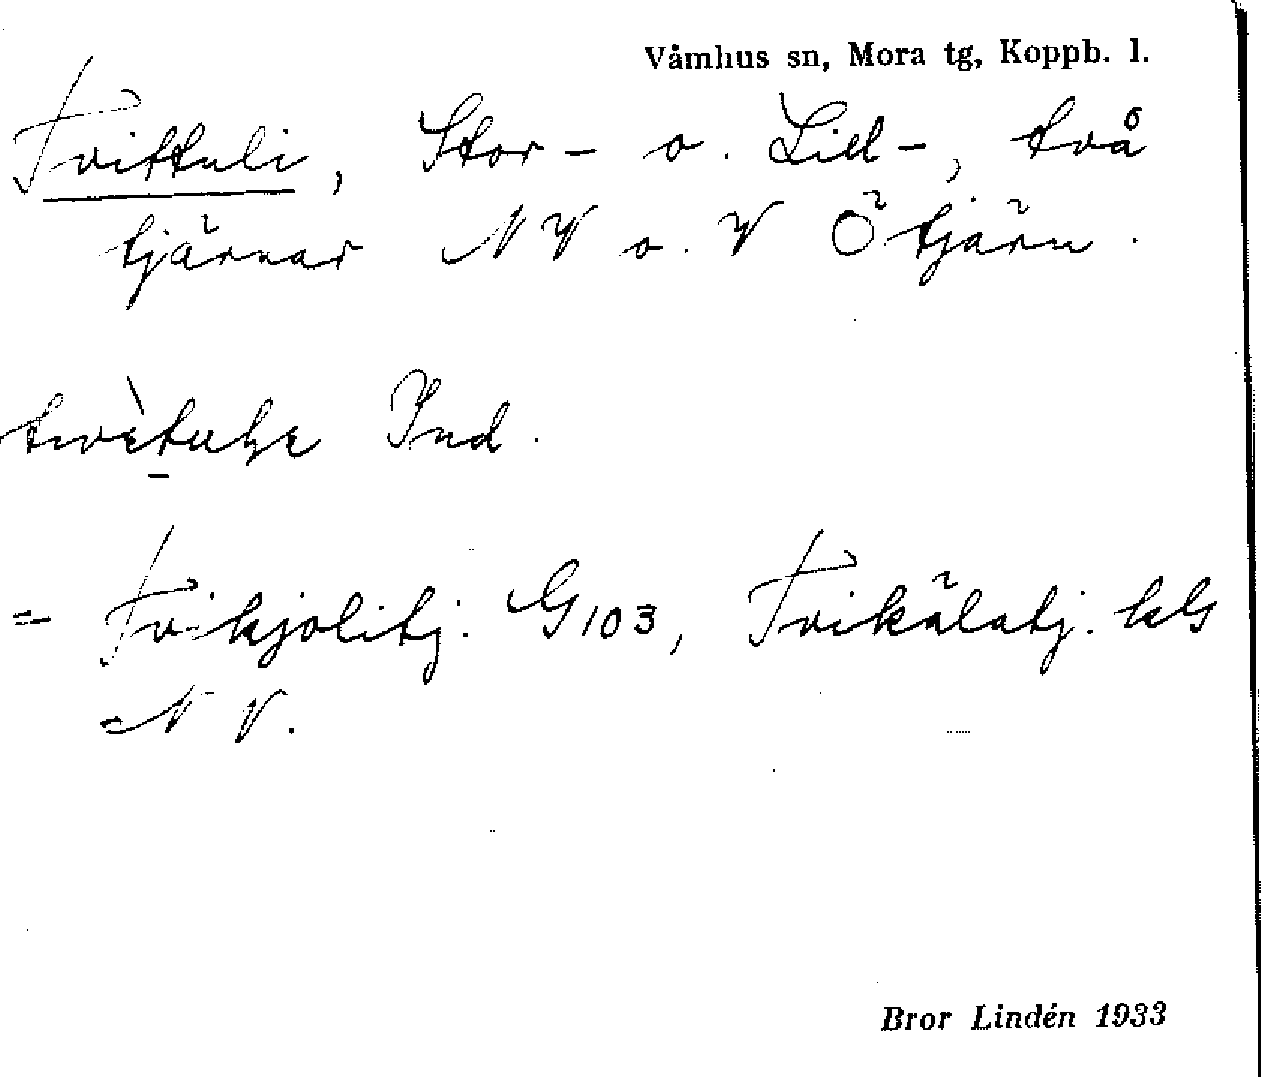 Våmhus sn, Mora tg, Koppb. l.
Tvittuli, Stor- o. Lill-, två
tjärnar NV o. V Ötjärn.
Ind.
= Tvikjolitj. G 103, Tvikälatj. kG
NV.
Bror Lindén 1933